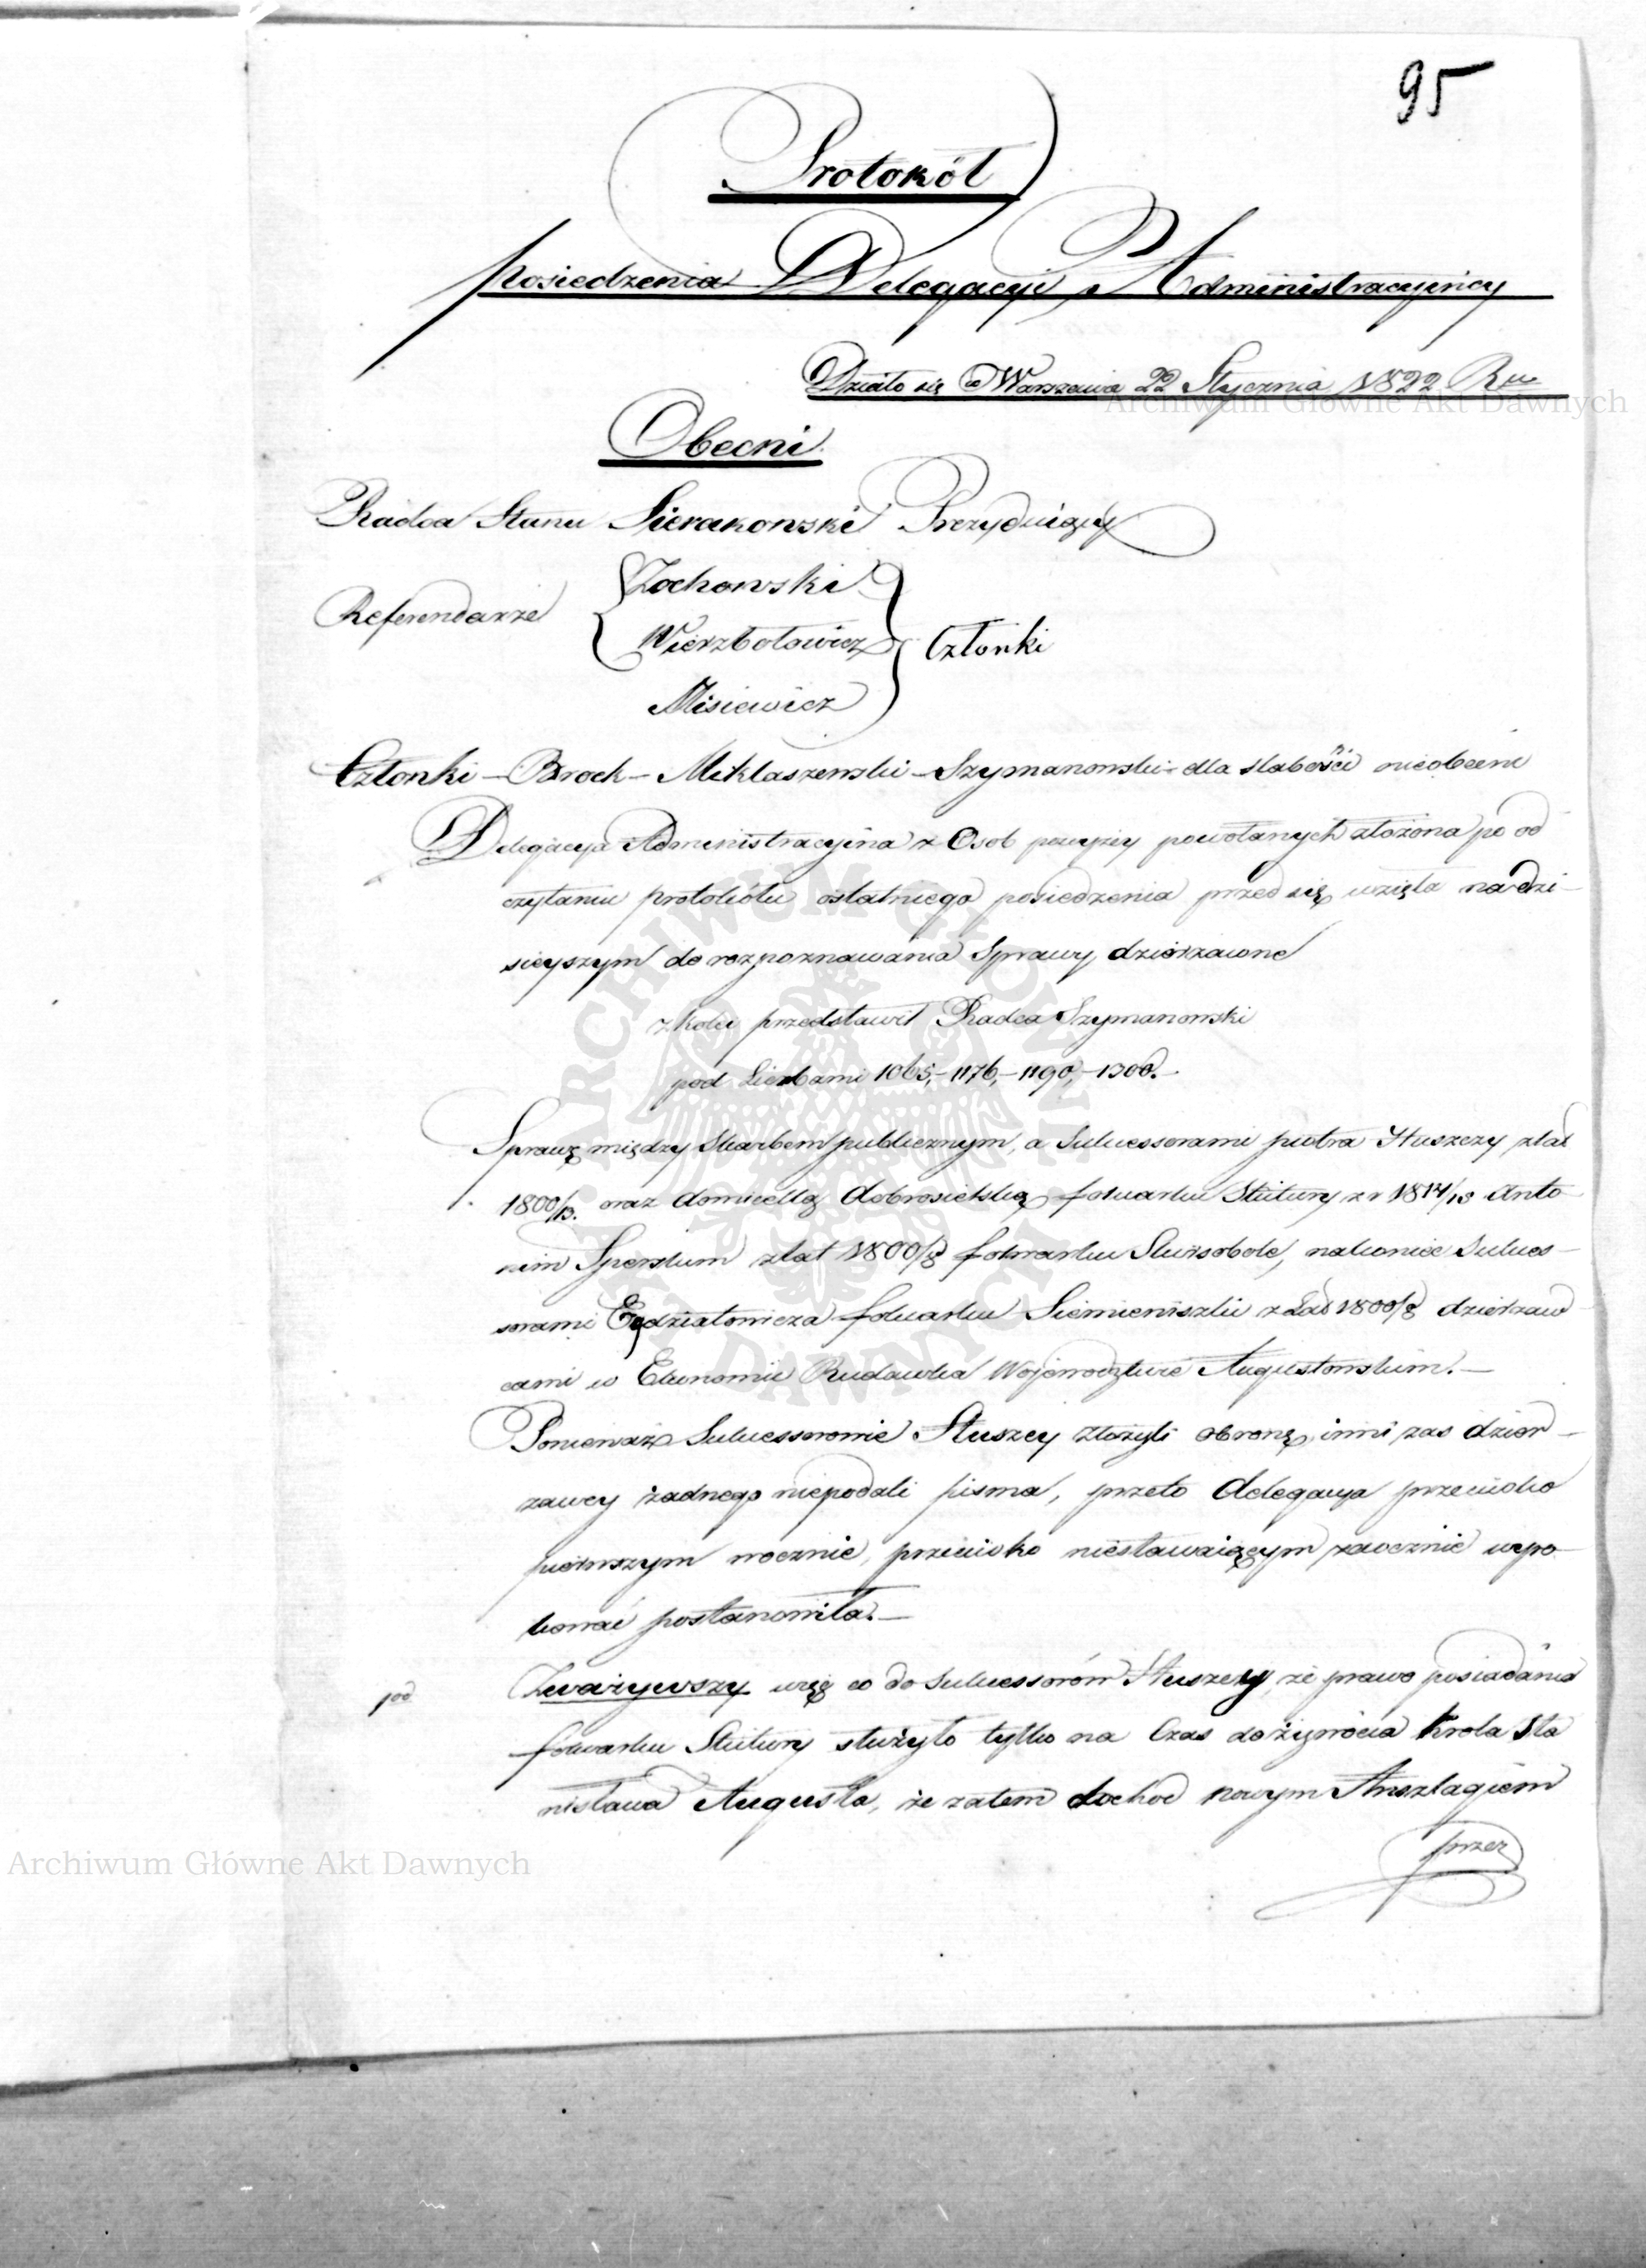 95
Protokół
posiedzenia Delegacyi Administracyiney
Działo się w Warszawie 22 Stycznia 1822 Rku
Archiwum Główne Akt Dawnych
Obecni
Radca Stanu Sierakowski Prezyduiący
Referendarze
Zochowski
Wierzbołowicz
Członki
Misiewicz
Członki - Brock - Miklaszewski - Szymanowski - dla słabości nieobecni
Delegacya Administracyina z Osob powyżey powołanych złożona po od
czytaniu protokółu ostatniego posiedzenia przedsięwzięła na dzi-
sieyszym do rozpoznawania Sprawy dzierżawne
z kolei przedstawił Radca Szymanowski
pod Liczbami 1065,- 1176,- 1190,- 1300.-
Sprawę między Skarbem publicznym, a Sukcessorami piotra Stuszczy z lat
1800/13. oraz domicellą dobrosielską folwarku Stutury z r 1814/15 Anto
nim z lat 1800/8 folwarku nakoniec Sukces-
sorami folwarku Siemieniszki z Lat 1800/8 dzierżaw
cami w Ekonomii Rudawka Wojewodztwie Augustowskim.-
Ponieważ Sukcessorowie Stuszczy złożyli obronę, inni zas dzier-
zawcy żadnego niepodali pisma, przeto delegacya przeciwko
pierwszym ocznie, przeciwko niestawaiącym zaocznie wyro
kować postanowiła.-
pod
Zważywszy więc co do Sukcessorów Stuszczy, że prawo posiadania
folwarku Stutury służyło tylko na Czas dożywocia Krola Sta
nisława Augusta, że zatem dochod nowym Anszlagiem
przez
Archiwum Główne Akt Dawnych
ARCHIWUM GŁÓWNE AKT DAWNYCH